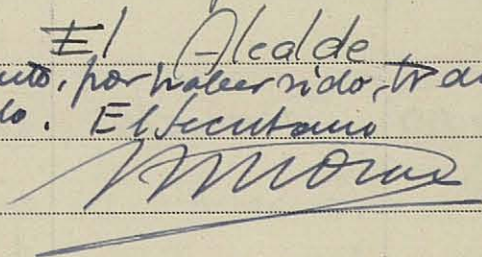 El Alcalde
uto, por haber sido, tra
do. El Secretario